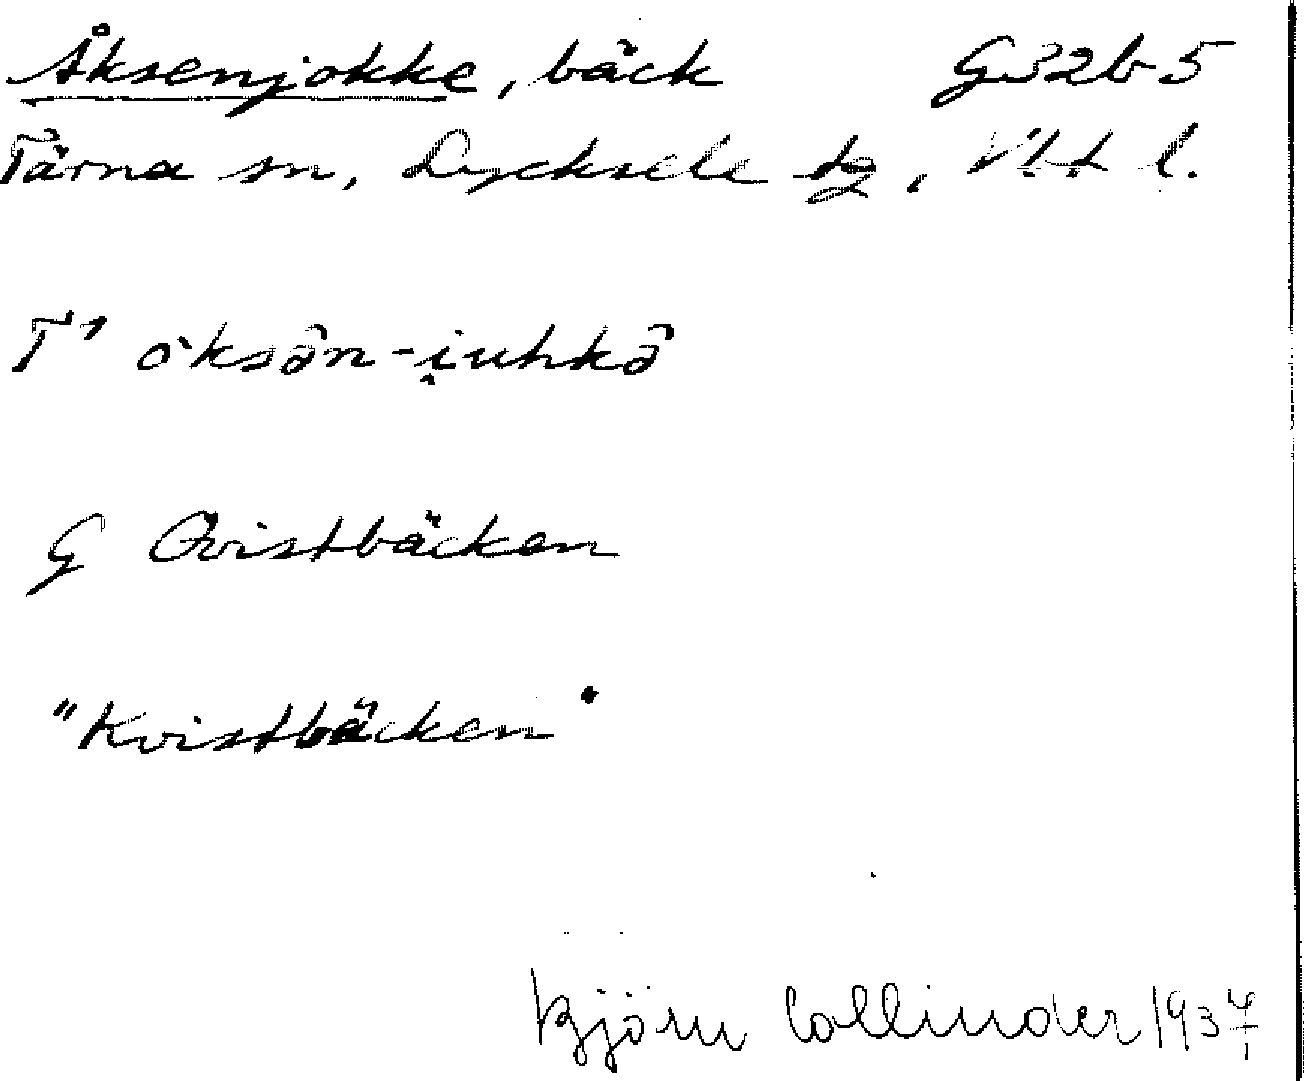 Åksenjokke, bäck G32b5
Tärna sn, Lycksele tg, Vbt l.
T' åksân-i̯uhkâ
G Qvistbäcken
"Kvistbäcken"
Björn Collinder 1937